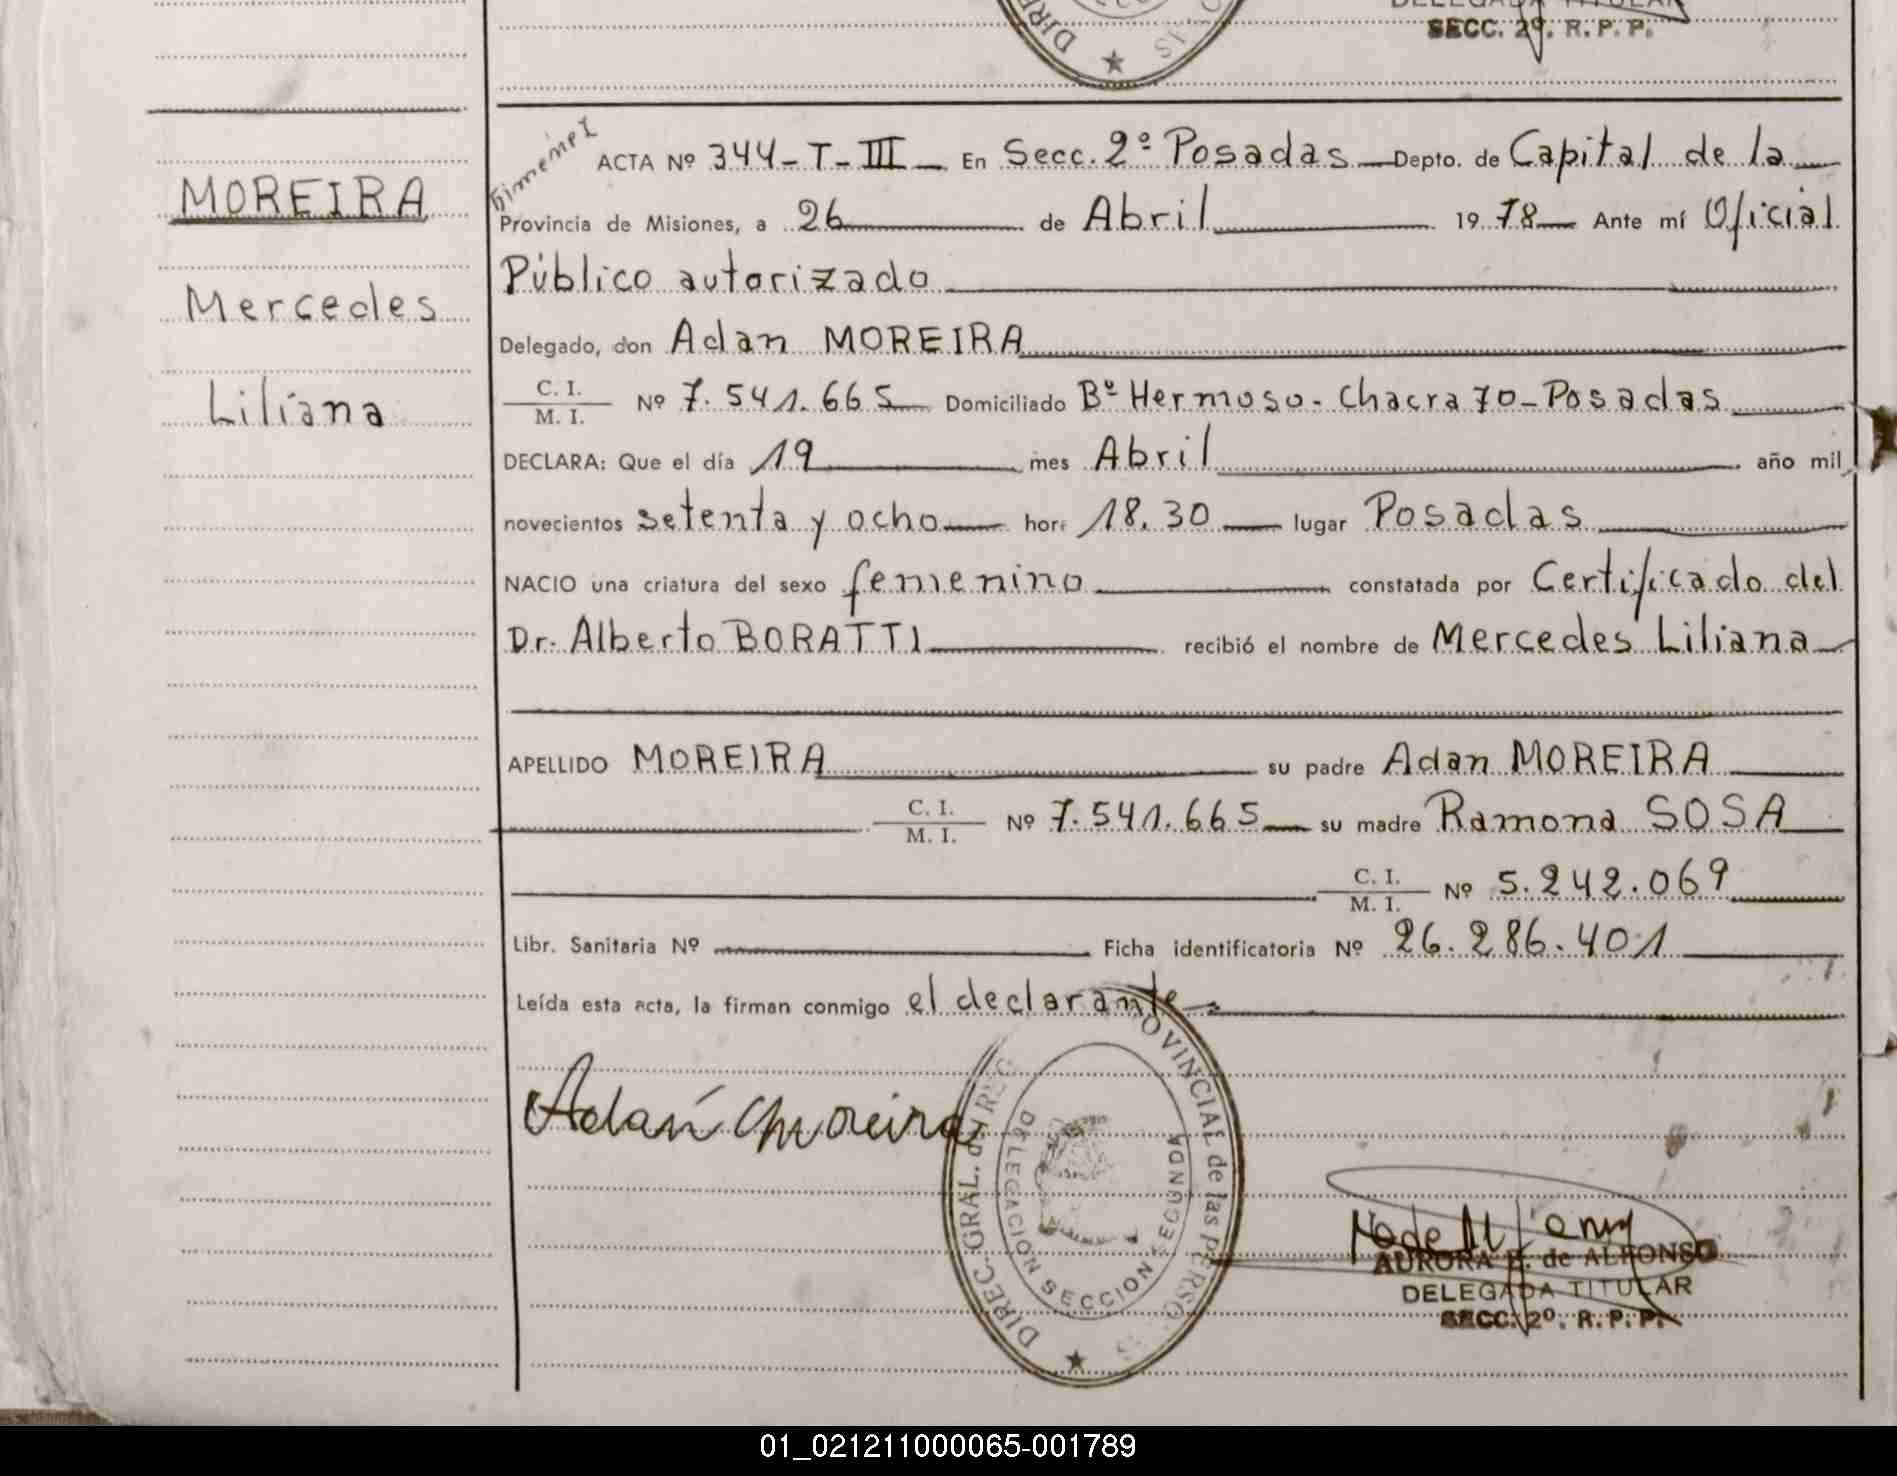 DELEGADA TITULAR
SECC. 2º. R. P. P.
DIRE
MOREIRA
Mercedes
Liliana
ACTA Nº 344-T-III En Secc. 2º Posadas Depto. de Capital de la
Provincia de Misiones, a 26 de Abril 19 78 Ante mí Oficial
Público autorizado
Delegado, don Adan MOREIRA
C. I.
M. I. Nº 7.541.665 Domiciliado Bº Hermoso - Chacra 70 - Posadas
DECLARA: Que el día 19 mes Abril año mil
novecientos setenta y ocho hora 18.30 lugar Posadas
NACIO una criatura del sexo femenino constatada por Certificado del
Dr. Alberto BORATTI recibió el nombre de Mercedes Liliana
APELLIDO MOREIRA su padre Adan MOREIRA
C. I.
M. I. Nº 7.541.665 su madre Ramona SOSA
C. I.
M. I. Nº 5.242.069
Libr. Sanitaria Nº Ficha identificatoria Nº 26.286.401
Leída esta acta, la firman conmigo el declarante
Adan Moreira
DIREC. GRAL. del REG PROVINCIAL de las PERSONAS
DELEGACION SECCION SEGUNDA
AURORA E. de ALFONSO
DELEGADA TITULAR
SECC. 2º. R. P. P.
01_021211000065-001789